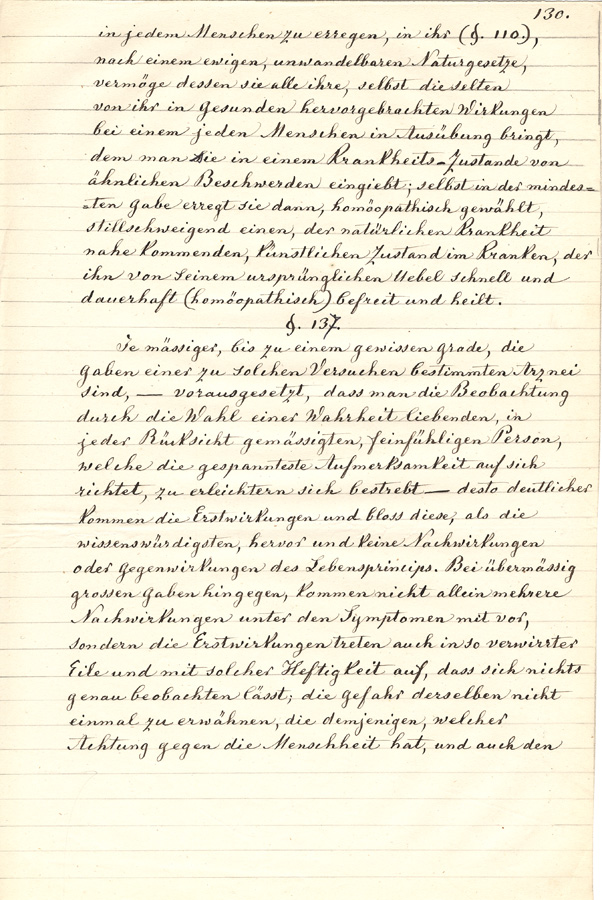 130.
in jedem Menschen zu erregen, in ihr (§. 110.),
nach einem ewigen, unwandelbaren Naturgesetze,
vermöge dessen sie alle ihre, selbst die selten
von ihr in Gesunden hervorgebrachten Wirkungen
bei einem jeden Menschen in Ausübung bringt,
dem man sie in einem Krankheits-Zustande von
ähnlichen Beschwerden eingiebt; selbst in der mindes-
-ten Gabe erregt sie dann, homöopathisch gewählt,
stillschweigend einen, der natürlichen Krankheit
nahe kommenden, künstlichen Zustand im Kranken, der
ihn von seinem ursprünglichen Uebel schnell und
dauerhaft (homöopathisch) befreit und heilt.
§. 137.
Je mässiger, bis zu einem gewissen grade, die
Gaben einer zu solchen Versuchen bestimmten Arznei
sind, — vorausgesetzt, dass man die Beobachtung
durch die Wahl einer Wahrheit liebenden, in
jeder Rücksicht gemässigten, feinfühligen Person,
welche die gespannteste Aufmerksamkeit auf sich
richtet, zu erleichtern sich bestrebt — desto deutlicher
kommen die Erstwirkungen und bloss diese, als die
wissenswürdigsten, hervor und keine Nachwirkungen
oder Gegenwirkungen des Lebensprincips. Bei übermässig
grossen Gaben hingegen, kommen nicht allein mehrere
Nachwirkungen unter den Symptomen mit vor,
sondern die Erstwirkungen treten auch in so verwirrter
Eile und mit solcher Heftigkeit auf, dass sich nichts
genau beobachten lässt; die Gefahr derselben nicht
einmal zu erwähnen, die demjenigen, welcher
Achtung gegen die Menschheit hat, und auch den